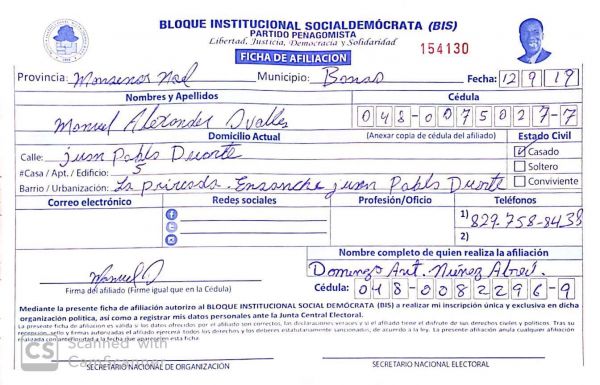 BLOQUE INSTITUCIONAL SOCIALDEMÓCRATA (BIS)
PARTIDO PENAGOMISTA
Libertad, Justicia, Democracia y Solidaridad
154130
FICHA DE AFILIACION
Provincia: Monsenor Noel Municipio: Bonao Fecha: 12 9 19
Nombres y Apellidos Cédula
Manuel Alexander Ovalles 048-0075027-7
Domicilio Actual (Anexar copia de cédula del afiliado) Estado Civil
Calle: juan Pablo Duarte Casado
#Casa / Apt. / Edificio: 5 Soltero
Barrio / Urbanización: La privada. Ensanche juan Pablo Duarte Conviviente
Correo electrónico Redes sociales Profesión/Oficio Teléfonos
1) 829-758-8438
2)
Nombre completo de quien realiza la afiliación
Manuel O Domingo Ant. Núñez Abreú.
Firma del afiliado (Firme igual que en la Cédula) Cédula: 048-0082296-9
Mediante la presente ficha de afiliación autorizo al BLOQUE INSTITUCIONAL SOCIAL DEMÓCRATA (BIS) a realizar mi inscripción única y exclusiva en dicha
organización política, así como a registrar mis datos personales ante la Junta Central Electoral.
La presente ficha de afiliación es válida si los datos ofrecidos por el afiliado son correctos, las declaraciones veraces y si el afiliado tiene el disfrute de sus derechos civiles y políticos. Tras su
recepción, sello y firmas autorizadas el afiliado ejercerá todos los derechos y los deberes estatutariamente sancionados, de acuerdo a la ley. La presente afiliación anula cualquier afiliación
realizada con anterioridad a la fecha que aparece en esta ficha.
CS Scanned with
CamScanner
SECRETARIO NACIONAL DE ORGANIZACIÓN SECRETARIO NACIONAL ELECTORAL